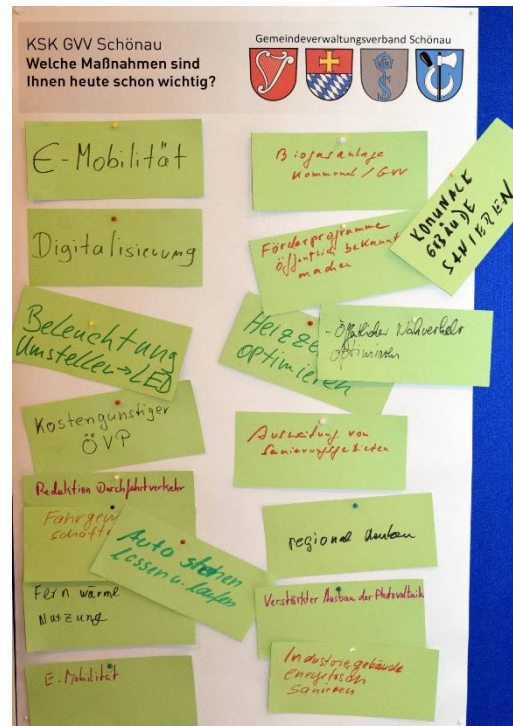 KSK GVV Schönau
Welche Maßnahmen sind
Ihnen heute schon wichtig?
Gemeindeverwaltungsverband Schönau
E-Mobilität
Digitalisierung
Beleuchtung
Umstellen→LED
Kostengünstiger
ÖVP
Reduktion Durchfahrtverkehr
Fahrgem
schafte
Auto stehen
lassen u. laufen
Fern wärme
Nutzung
E-Mobilität
Biogasanlage
Kommunal / GVV
KOMUNALE
GEBÄUDE
SANIEREN
Förderprogramme
öffentlich bekannt
machen
Heizze
optimieren
- Öffentlicher Nahverkehr
optimieren
Ausweitung von
Sanierungsgebieten
regional
Verstärkter Ausbau der Photovoltaik
Industriegebäude
energetisch
Sanieren